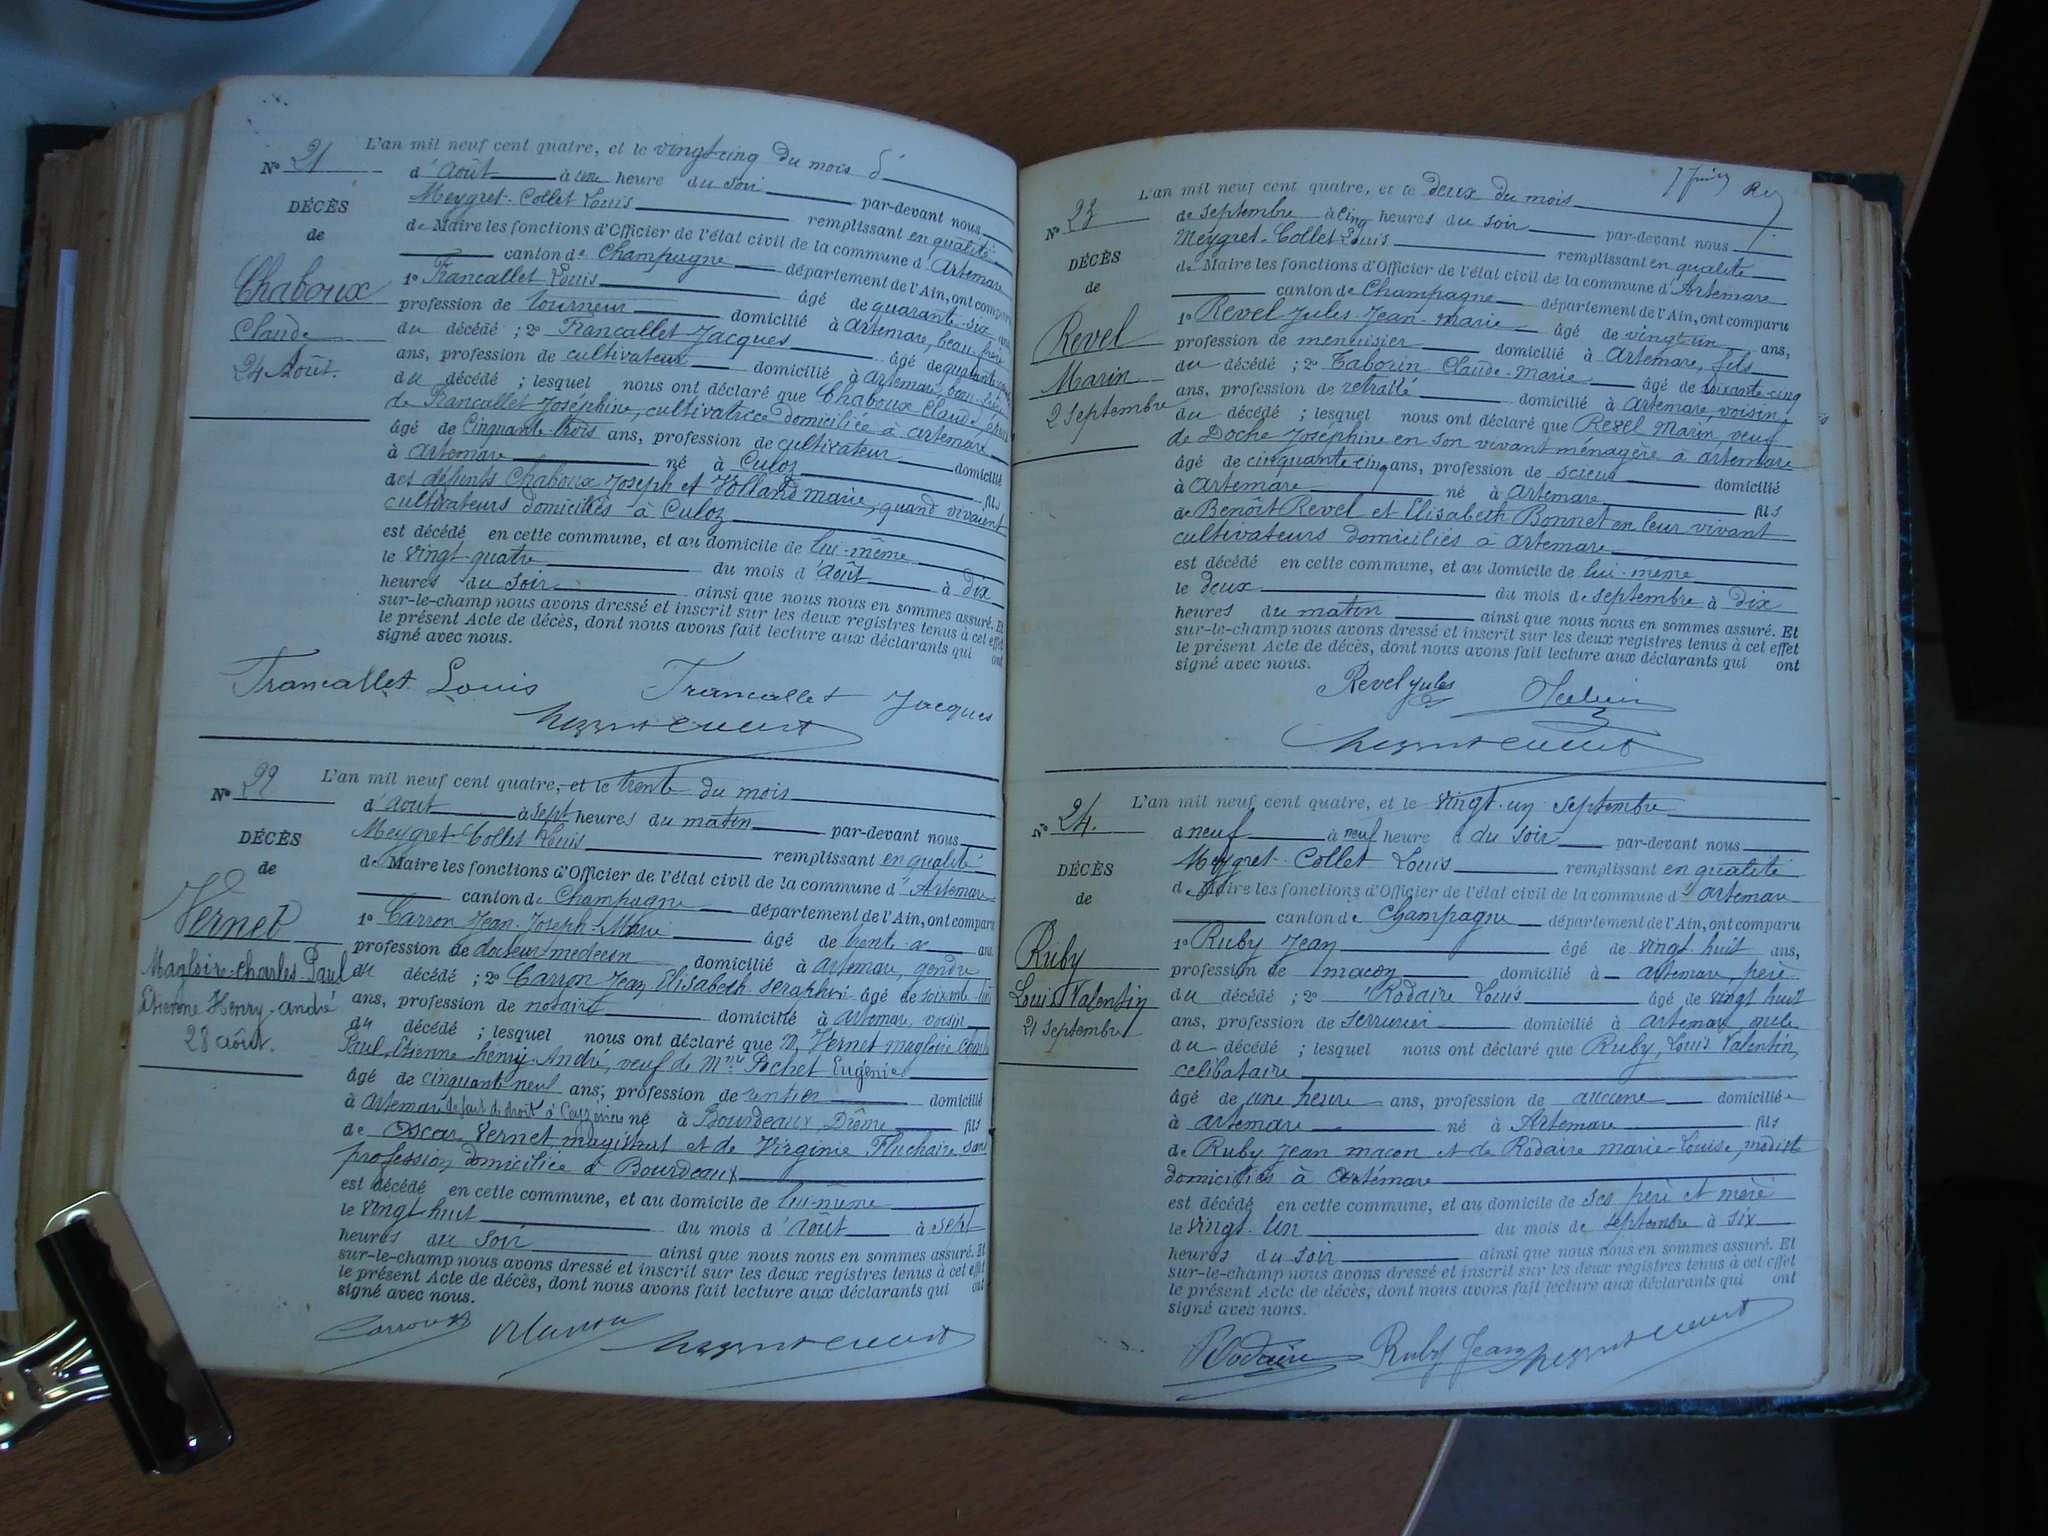 L'an mil neuf cent quatre, et le vingt-cinq du mois d'
N° 21
d'Août à une heure du soir par-devant nous
Meygret-Collet Louis remplissant en qualité
de Maire les fonctions d'Officier de l'état civil de la commune d'Artemare
canton de Champagne département de l'Ain, ont comparu
DÉCÈS
de
Chaboux
Claude
24 Août.
1° Francallet Louis âgé de quarante-six ans,
profession de tourneur domicilié à Artemare, beau-frère
du décédé ; 2° Francallet Jacques âgé de quarante
ans, profession de cultivateur domicilié à Artemare, beau-frère
du décédé ; lesquel nous ont déclaré que Chaboux Claude, époux
de Francallet Joséphine, cultivatrice domiciliée à artemare
âgé de cinquante-trois ans, profession de cultivateur domicilié
à Artemare né à Culoz fils
des défunts Chaboux Joseph et Volland marie, quand vivaient
cultivateurs domiciliés à Culoz
est décédé en cette commune, et au domicile de lui-même
le vingt-quatre du mois d'août à dix
heures du soir ainsi que nous nous en sommes assuré. Et
sur-le-champ nous avons dressé et inscrit sur les deux registres tenus à cet effet
le présent Acte de décès, dont nous avons fait lecture aux déclarants qui ont
signé avec nous.
Francallet Louis Francallet Jacques
L'an mil neuf cent quatre, et le trente du mois
N° 22
d'août à sept heures du matin par-devant nous
Meygret-Collet Louis remplissant en qualité
de Maire les fonctions d'Officier de l'état civil de la commune d'Artemare
canton de Champagne département de l'Ain, ont comparu
DÉCÈS
de
Vernet
Magloire-Charles-Paul
Etienne Henry-andré
28 août.
1° Carron Jean-Joseph-Marie âgé de trente ans
profession de docteur-medecin domicilié à artemare, gendre
du décédé ; 2° Carron Jean Elisabeth Seraphin âgé de soixante
ans, profession de notaire domicilié à artemare, voisin
du décédé ; lesquel nous ont déclaré que M. Vernet magloire Charles
Paul, Etienne henry-André, veuf de Mme Pochet Eugénie
âgé de cinquante-neuf ans, profession de rentier domicilié
à Artemare de fait de droit à Ceyzérieu né à Bourdeaux Drôme fils
de Oscar Vernet magistrat et de Virginie Fluchaire sans
profession domiciliée à Bourdeaux
est décédé en cette commune, et au domicile de lui-même
le vingt huit du mois d'août à sept
heures du soir ainsi que nous nous en sommes assuré. Et
sur-le-champ nous avons dressé et inscrit sur les deux registres tenus à cet effet
le présent Acte de décès, dont nous avons fait lecture aux déclarants qui ont
signé avec nous.
L'an mil neuf cent quatre, et le deux du mois
N° 23
de septembre à cinq heures du soir par-devant nous
Meygret-Collet Louis remplissant en qualité
de Maire les fonctions d'Officier de l'état civil de la commune d'Artemare
canton de Champagne département de l'Ain, ont comparu
DÉCÈS
de
Revel
Marin
2 septembre
1° Revel Jules-Jean-Marie âgé de vingt-un ans,
profession de menuisier domicilié à Artemare, fils
du décédé ; 2° Taborin Claude-Marie âgé de soixante-cinq
ans, profession de retraité domicilié à Artemare voisin
du décédé ; lesquel nous ont déclaré que Revel Marin, veuf
de Doche Joséphine en son vivant ménagère à artemare
âgé de cinquante-cinq ans, profession de scieur domicilié
à artemare né à artemare fils
de Benoît Revel et Elisabeth Bonnet en leur vivant
cultivateurs domiciliés à artemare
est décédé en cette commune, et au domicile de lui-même
le deux du mois de septembre à dix
heures du matin ainsi que nous nous en sommes assuré. Et
sur-le-champ nous avons dressé et inscrit sur les deux registres tenus à cet effet
le présent Acte de décès, dont nous avons fait lecture aux déclarants qui ont
signé avec nous.
Revel Jules
L'an mil neuf cent quatre, et le vingt-un septembre
N° 24.
à neuf à neuf heure s du soir par-devant nous
Meygret-Collet Louis remplissant en qualité
de Maire les fonctions d'Officier de l'état civil de la commune d'artemare
canton de Champagne département de l'Ain, ont comparu
DÉCÈS
de
Ruby
Louis Valentin
21 septembre
1° Ruby Jean âgé de vingt-huit ans,
profession de maçon domicilié à artemare, père
du décédé ; 2° Rodaire Louis âgé de vingt huit
ans, profession de serrurier domicilié à artemare oncle
du décédé ; lesquel nous ont déclaré que Ruby, Louis Valentin,
celibataire
âgé de une heure ans, profession de aucune domicilié
à artemare né à Artemare fils
de Ruby Jean maçon et de Rodaire marie-Louise, modiste
domiciliés à Artémare
est décédé en cette commune, et au domicile de ses père et mère
le vingt-un du mois de septembre à six
heures du soir ainsi que nous nous en sommes assuré. Et
sur-le-champ nous avons dressé et inscrit sur les deux registres tenus à cet effet
le présent Acte de décès, dont nous avons fait lecture aux déclarants qui ont
signé avec nous.
Rodaire Ruby Jean